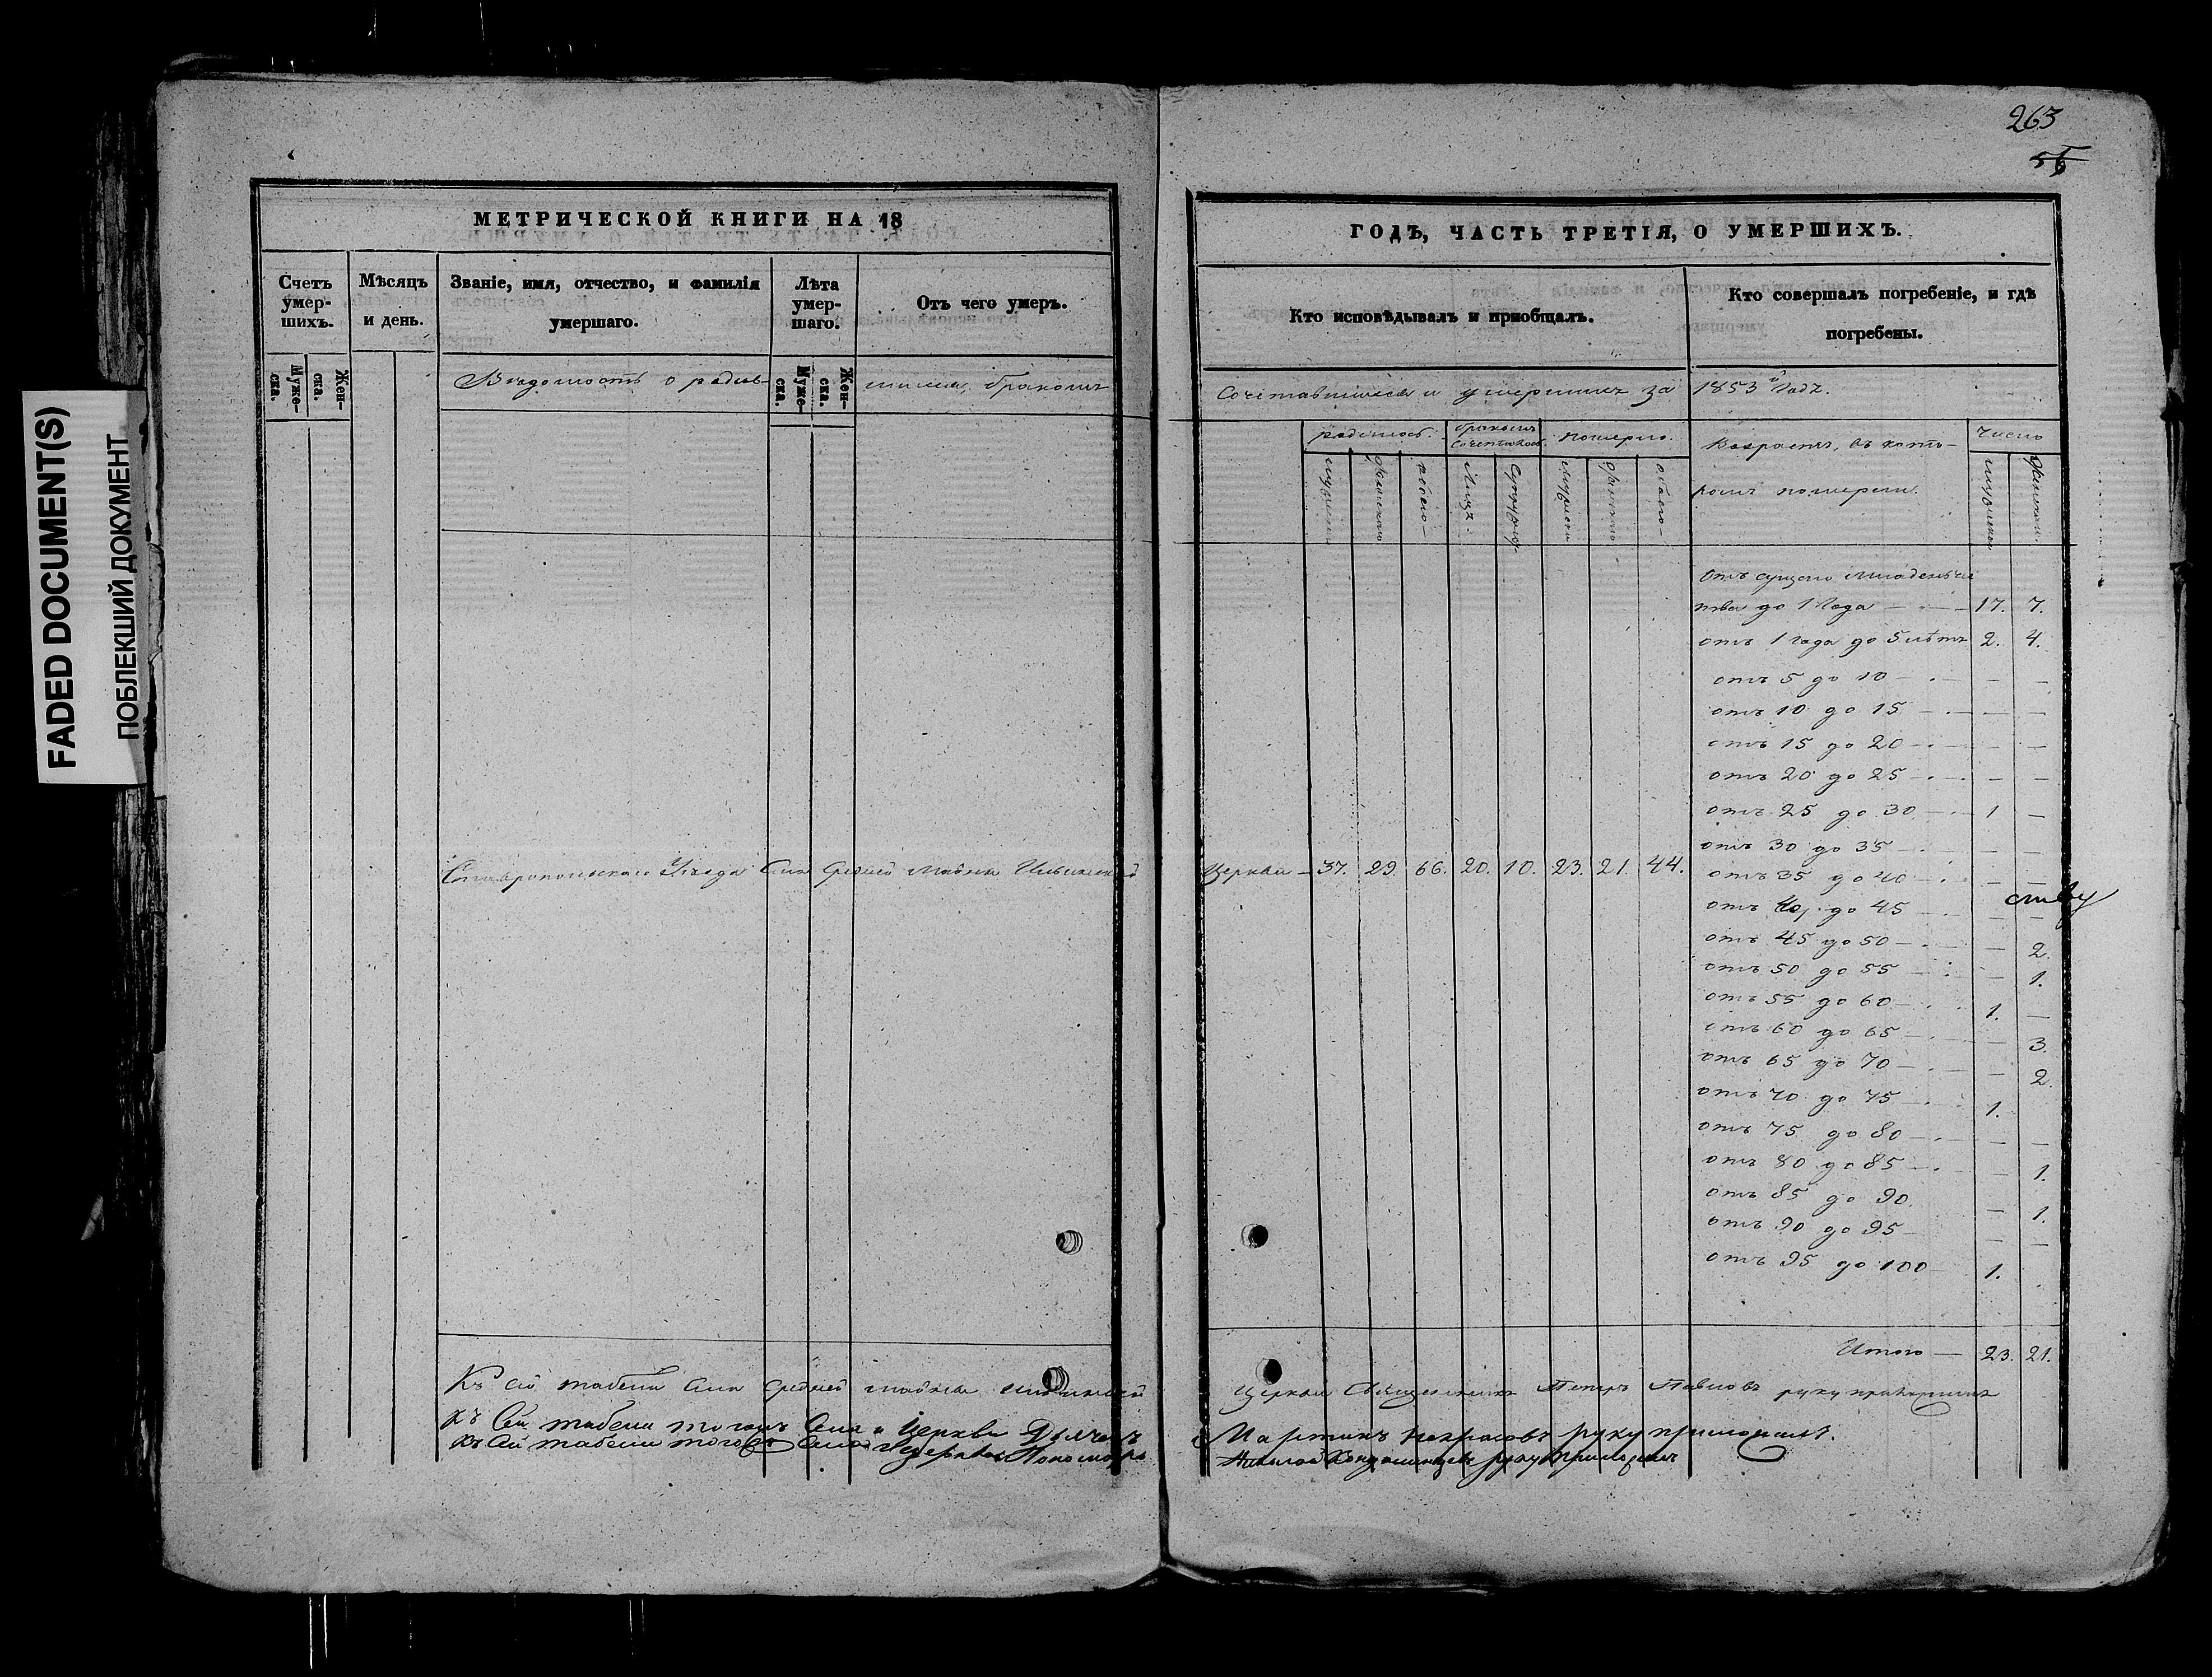 263
56
FADED DOCUMENT(S)
ПОБЛЕКШИЙ ДОКУМЕНТ
МЕТРИЧЕСКОЙ КНИГИ НА 18
ГОДЪ, ЧАСТЬ ТРЕТІЯ, О УМЕРШИХЪ.
Счетъ умер-шихъ.
Мѣсяцъ и день.
Званіе, имя, отчество, и фамилія умершаго.
Лѣта умер-шаго.
Отъ чего умеръ.
Кто исповѣдывалъ и пріобщалъ.
Кто совершалъ погребеніе, и гдѣ погребены.
Муже-ска.
Жен-ска.
Муже-ска.
Жен-ска.
Вѣдомость о родив-шихся, бракомъ
Сочетавшихся и умершихъ за 1853й Годъ.
родилось.
бракомъ сочеталось.
померло.
Возрастъ, въ кото-
ромъ померли.
Число
мужеска
женскаго
обоего
Лицъ.
Супружест
мужеска
женскаго
обоего
мужеска
женска
отъ сущаго младенче
ства до 1 Года 17. 7.
отъ 1 года до 5 лѣтъ 2. 4.
отъ 5 до 10 — —
отъ 10 до 15 — —
отъ 15 до 20 — —
отъ 20 до 25 — —
отъ 25 до 30 1 —
отъ 30 до 35 — —
Ставропольскаго Уѣзда Села Средней Майны
Церкви 37. 29. 66. 20. 10. 23. 21. 44.
отъ 35 до 40 — —
ству
отъ 40 до 45 — —
отъ 45 до 50 — 2.
отъ 50 до 55 — 1.
отъ 55 до 60 1. —
отъ 60 до 65 — 3.
отъ 65 до 70 — 2.
отъ 70 до 75 1.
отъ 75 до 80 — —
отъ 80 до 85 — 1.
отъ 85 до 90 — 1.
отъ 90 до 95 — —
отъ 95 до 100 1.
Итого — 23. 21.
Къ сей табели Села Средней майны
Церкви Священникъ Петръ Павловъ руку приложилъ
къ Сей табели тогожъ Села и Церкви Дьячекъ
Мартинъ Некрасовъ руку приложилъ.
къ сей табели тогожъ Села и Церкви Пономарь
Николай руку приложилъ